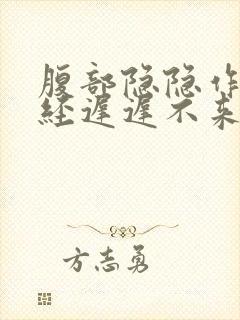 腹部隐隐作
经迟迟不来
方志勇